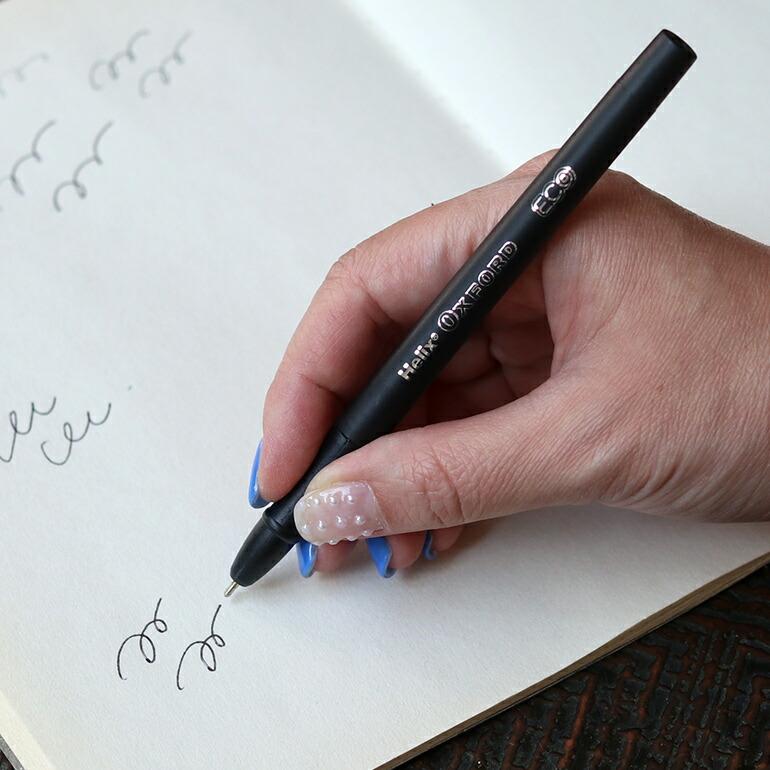 Helix® OXFORD ECO